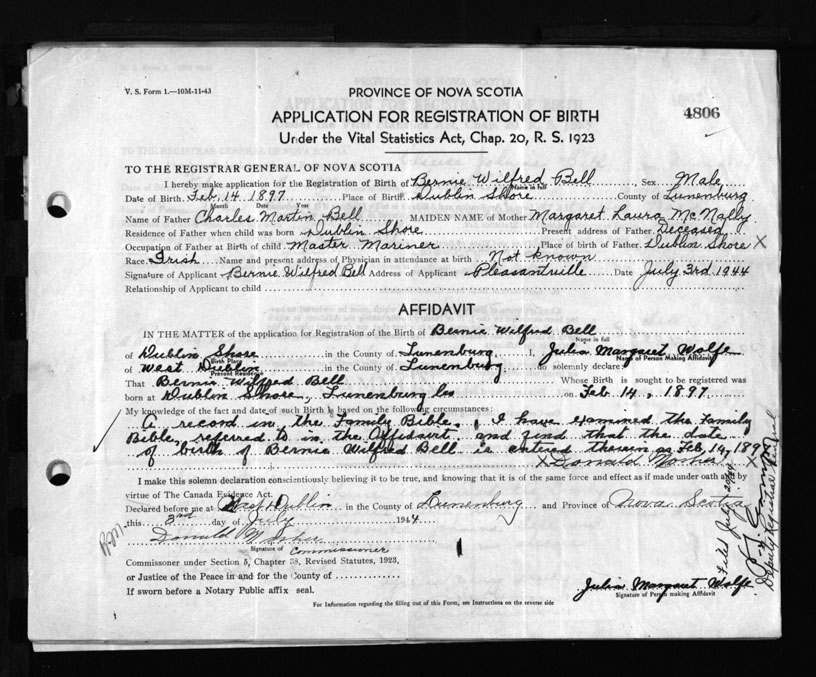 V. S. Form 1.—10M-11-43
PROVINCE OF NOVA SCOTIA
4806
APPLICATION FOR REGISTRATION OF BIRTH
Under the Vital Statistics Act, Chap. 20, R. S. 1923
TO THE REGISTRAR GENERAL OF NOVA SCOTIA
I hereby make application for the Registration of Birth of Bernie Wilfred Bell Sex Male
Name in full
Date of Birth Feb. 14 1897 Place of Birth Dublin Shore County of Lunenburg
Month Date Year
Name of Father Charles Martin Bell MAIDEN NAME of Mother Margaret Laura McNally
Residence of Father when child was born Dublin Shore Present address of Father Deceased
Occupation of Father at Birth of child Master Mariner Place of birth of Father Dublin Shore X
Race Irish Name and present address of Physician in attendance at birth Not known
Signature of Applicant Bernie Wilfred Bell Address of Applicant Pleasantville Date July 3rd 1944
Relationship of Applicant to child
AFFIDAVIT
IN THE MATTER of the application for Registration of the Birth of Bernie Wilfred Bell
Name in full
of Dublin Shore in the County of Lunenburg I, Julia Margaret Wolfe
Birth Place Name of Person Making Affidavit
of West Dublin in the County of Lunenburg do solemnly declare:
Present Residence
That Bernie Wilfred Bell Whose Birth is sought to be registered was
born at Dublin Shore, Lunenburg Co on Feb 14, 1897.
My knowledge of the fact and date of such Birth is based on the following circumstances:
A record in the Family Bible. I have examined the Family
Bible, referred to in the Affidavit and find that the date
of birth of Bernie Wilfred Bell is entered therein as Feb, 14, 189
X Donald X
I make this solemn declaration conscientiously believing it to be true, and knowing that it is of the same force and effect as if made under oath and by
virtue of The Canada Evidence Act.
Declared before me at West Dublin in the County of Lunenburg and Province of Nova Scotia
this 3rd day of July 1944
Donald
Signature of Commissioner
Commissioner under Section 5, Chapter 38, Revised Statutes, 1923,
or Justice of the Peace in and for the County of
If sworn before a Notary Public affix seal.
Julia Margaret Wolfe
Signature of Person making Affidavit
For Information regarding the filling out of this Form, see Instructions on the reverse side
Filed July
Deputy Registrar General